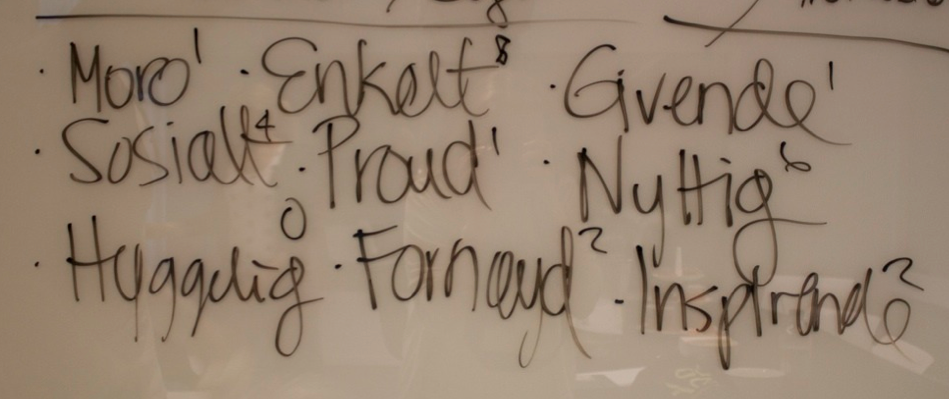 · Moro¹ · Enkelt⁸ · Givende¹
· Sosialt⁴ · Proud¹ · Nyttig⁶
· Hyggelig⁰ · Fornøyd² · Inspirende²